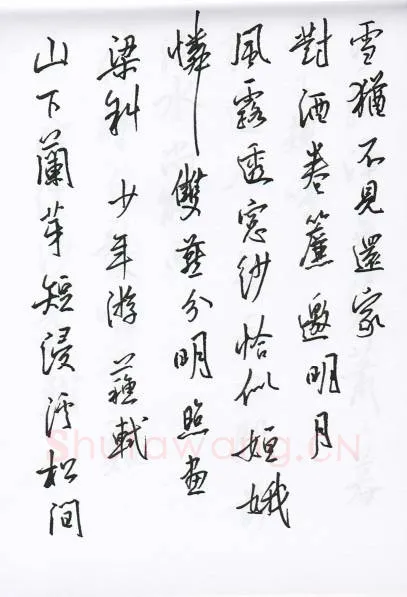 雪猶不見還家
對酒卷簾邀明月
風露透窓紗恰似姮娥
憐雙燕分明照畫
梁斜 少年游 蘇軾
山下蘭芽短浸溪松間
Shufawang.CN